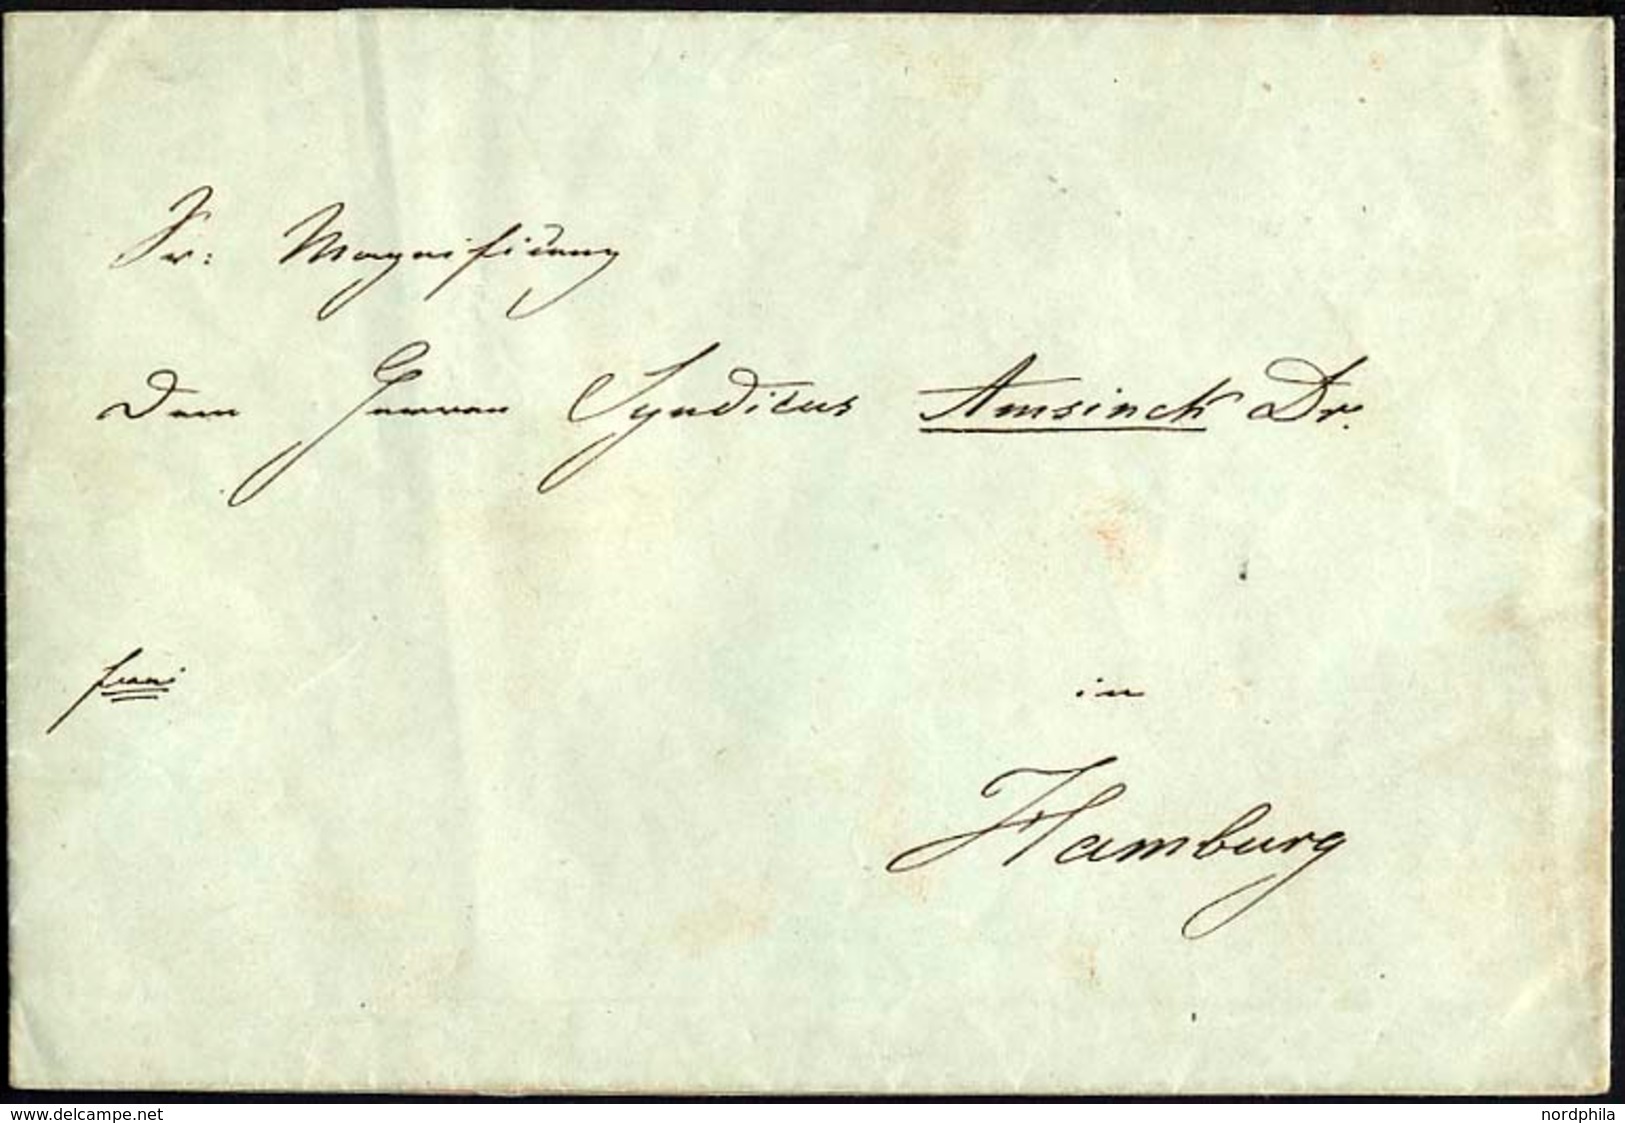 Sr: Magnificenz
Dem Herren Syndicus Amsinck Dr.
frei
in
Hamburg
www.delcampe.net
nordphila